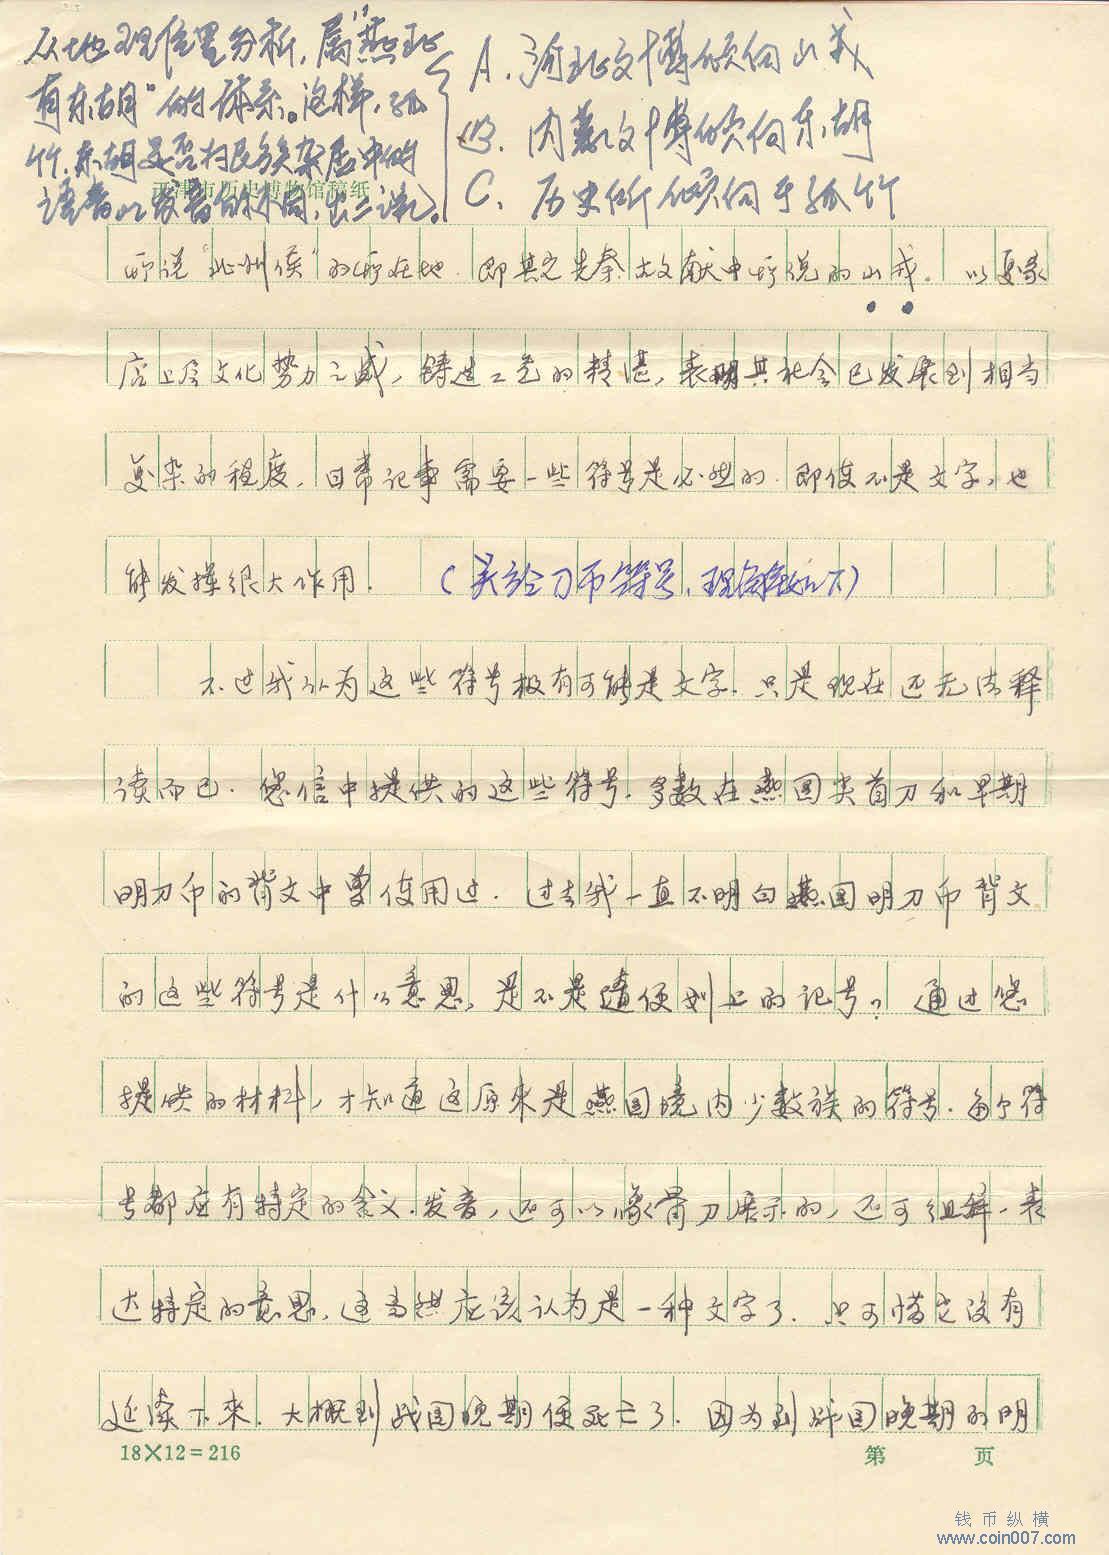 从地理位置分析，属“燕北
有东胡”的体系。这样，孤
竹、东胡是否为民族杂居中的
语音以发音的不同，出二说。
A、河北文博倾向山戎
B、内蒙文博倾向东胡
C、历史所倾向于孤竹
天津市历史博物馆稿纸
所说“北州侯”的所在地，即其它先秦古文献中所说的山戎。以夏家
店上层文化势力之盛，铸造工艺的精湛，表明其社会已发展到相当
复杂的程度，日常记事需要一些符号是必然的，即使不是文字，也
能发挥很大作用。（关於刀币符号，理解如下）
不过我认为这些符号极有可能是文字，只是现在还无法释
读而已。您信中提供的这些符号，多数在燕国尖首刀和早期
明刀币的背文中曾使用过。过去我一直不明白燕国明刀币背文
的这些符号是什么意思，是不是随便刻上的记号？通过您
提供的材料，才知道这原来是燕国境内少数族的符号。每个符
号都应有特定的含义、发音，还可以像骨刀展示的，还可组辞，表
达特定的意思，这当然应该认为是一种文字了。只可惜它没有
延续下来，大概到战国晚期便死亡了。因为到战国晚期的明
18×12=216
第 页
钱币纵横
www.coin007.com